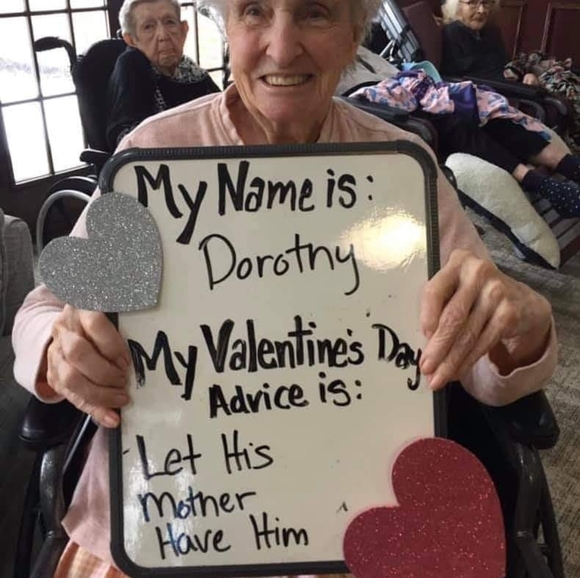 My Name is:
Dorothy
My Valentine's Day
Advice is:
Let His
Mother
Have Him